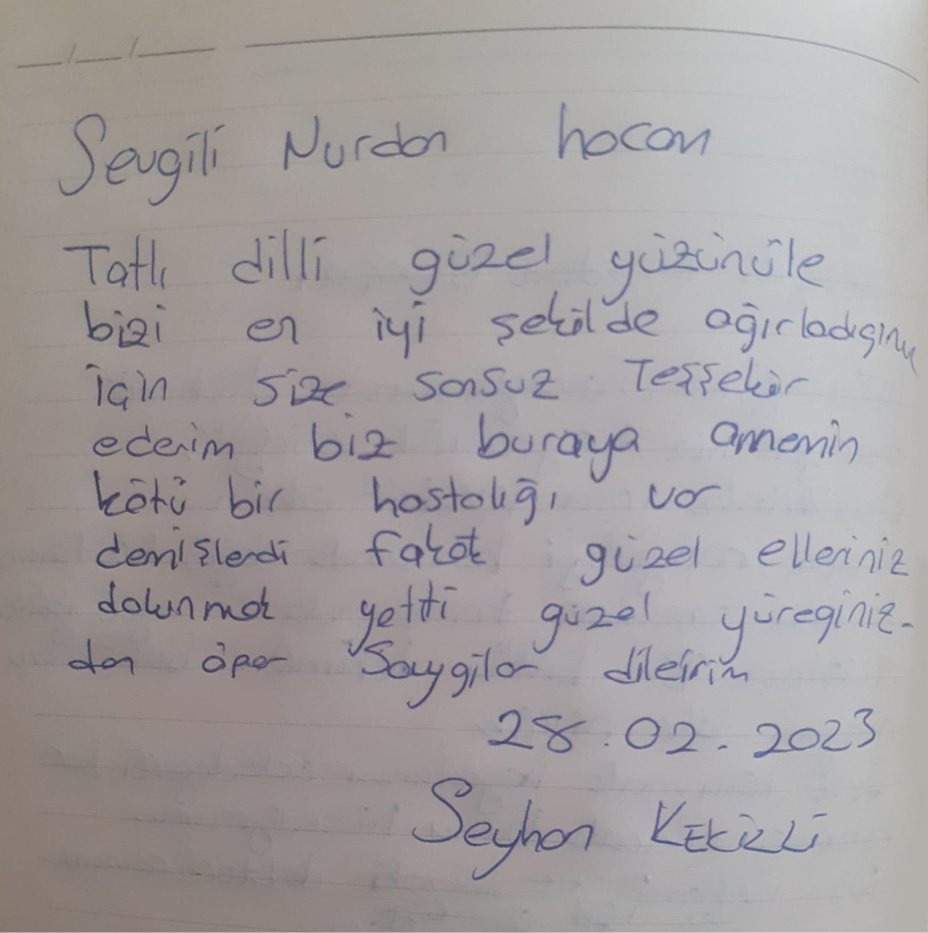 __/__/____
Sevgili Nurdan hocam
Tatlı dilli güzel yüzünüle
bizi en iyi şekilde ağırladıgını
için size sonsuz Teşşekür
ederim biz buraya annemin
kötü bir hastalığı var
demişlerdi fakat güzel elleriniz
dokunmak yetti güzel yüreginiz-
den öper Saygilar dileirim
28.02.2023
Seyhan KEKİLLİ